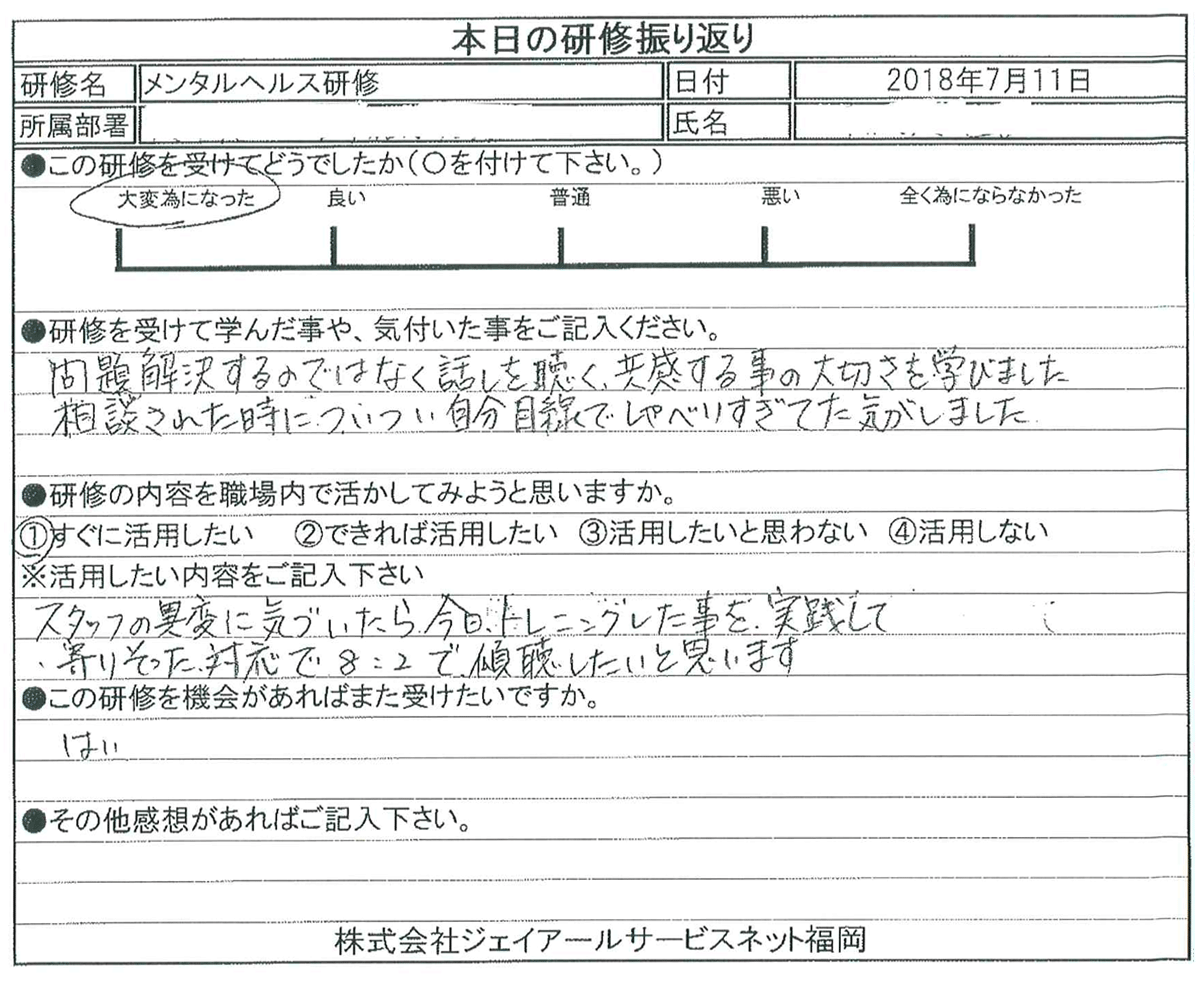 本日の研修振り返り
研修名 メンタルヘルス研修 日付 2018年7月11日
所属部署 氏名
●この研修を受けてどうでしたか(〇を付けて下さい。)
大変為になった 良い 普通 悪い 全く為にならなかった
●研修を受けて学んだ事や、気付いた事をご記入ください。
問題解決するのではなく話しを聴く、共感する事の大切さを学びました
相談された時に、ついつい自分目線でしゃべりすぎてた気がしました.
●研修の内容を職場内で活かしてみようと思いますか。
①すぐに活用したい ②できれば活用したい ③活用したいと思わない ④活用しない
※活用したい内容をご記入下さい
スタッフの異変に気づいたら、今日、トレーニングした事を、実践して
寄りそった、対応で8:2で、傾聴したいと思います
●この研修を機会があればまた受けたいですか。
はい
●その他感想があればご記入下さい。
株式会社ジェイアールサービスネット福岡